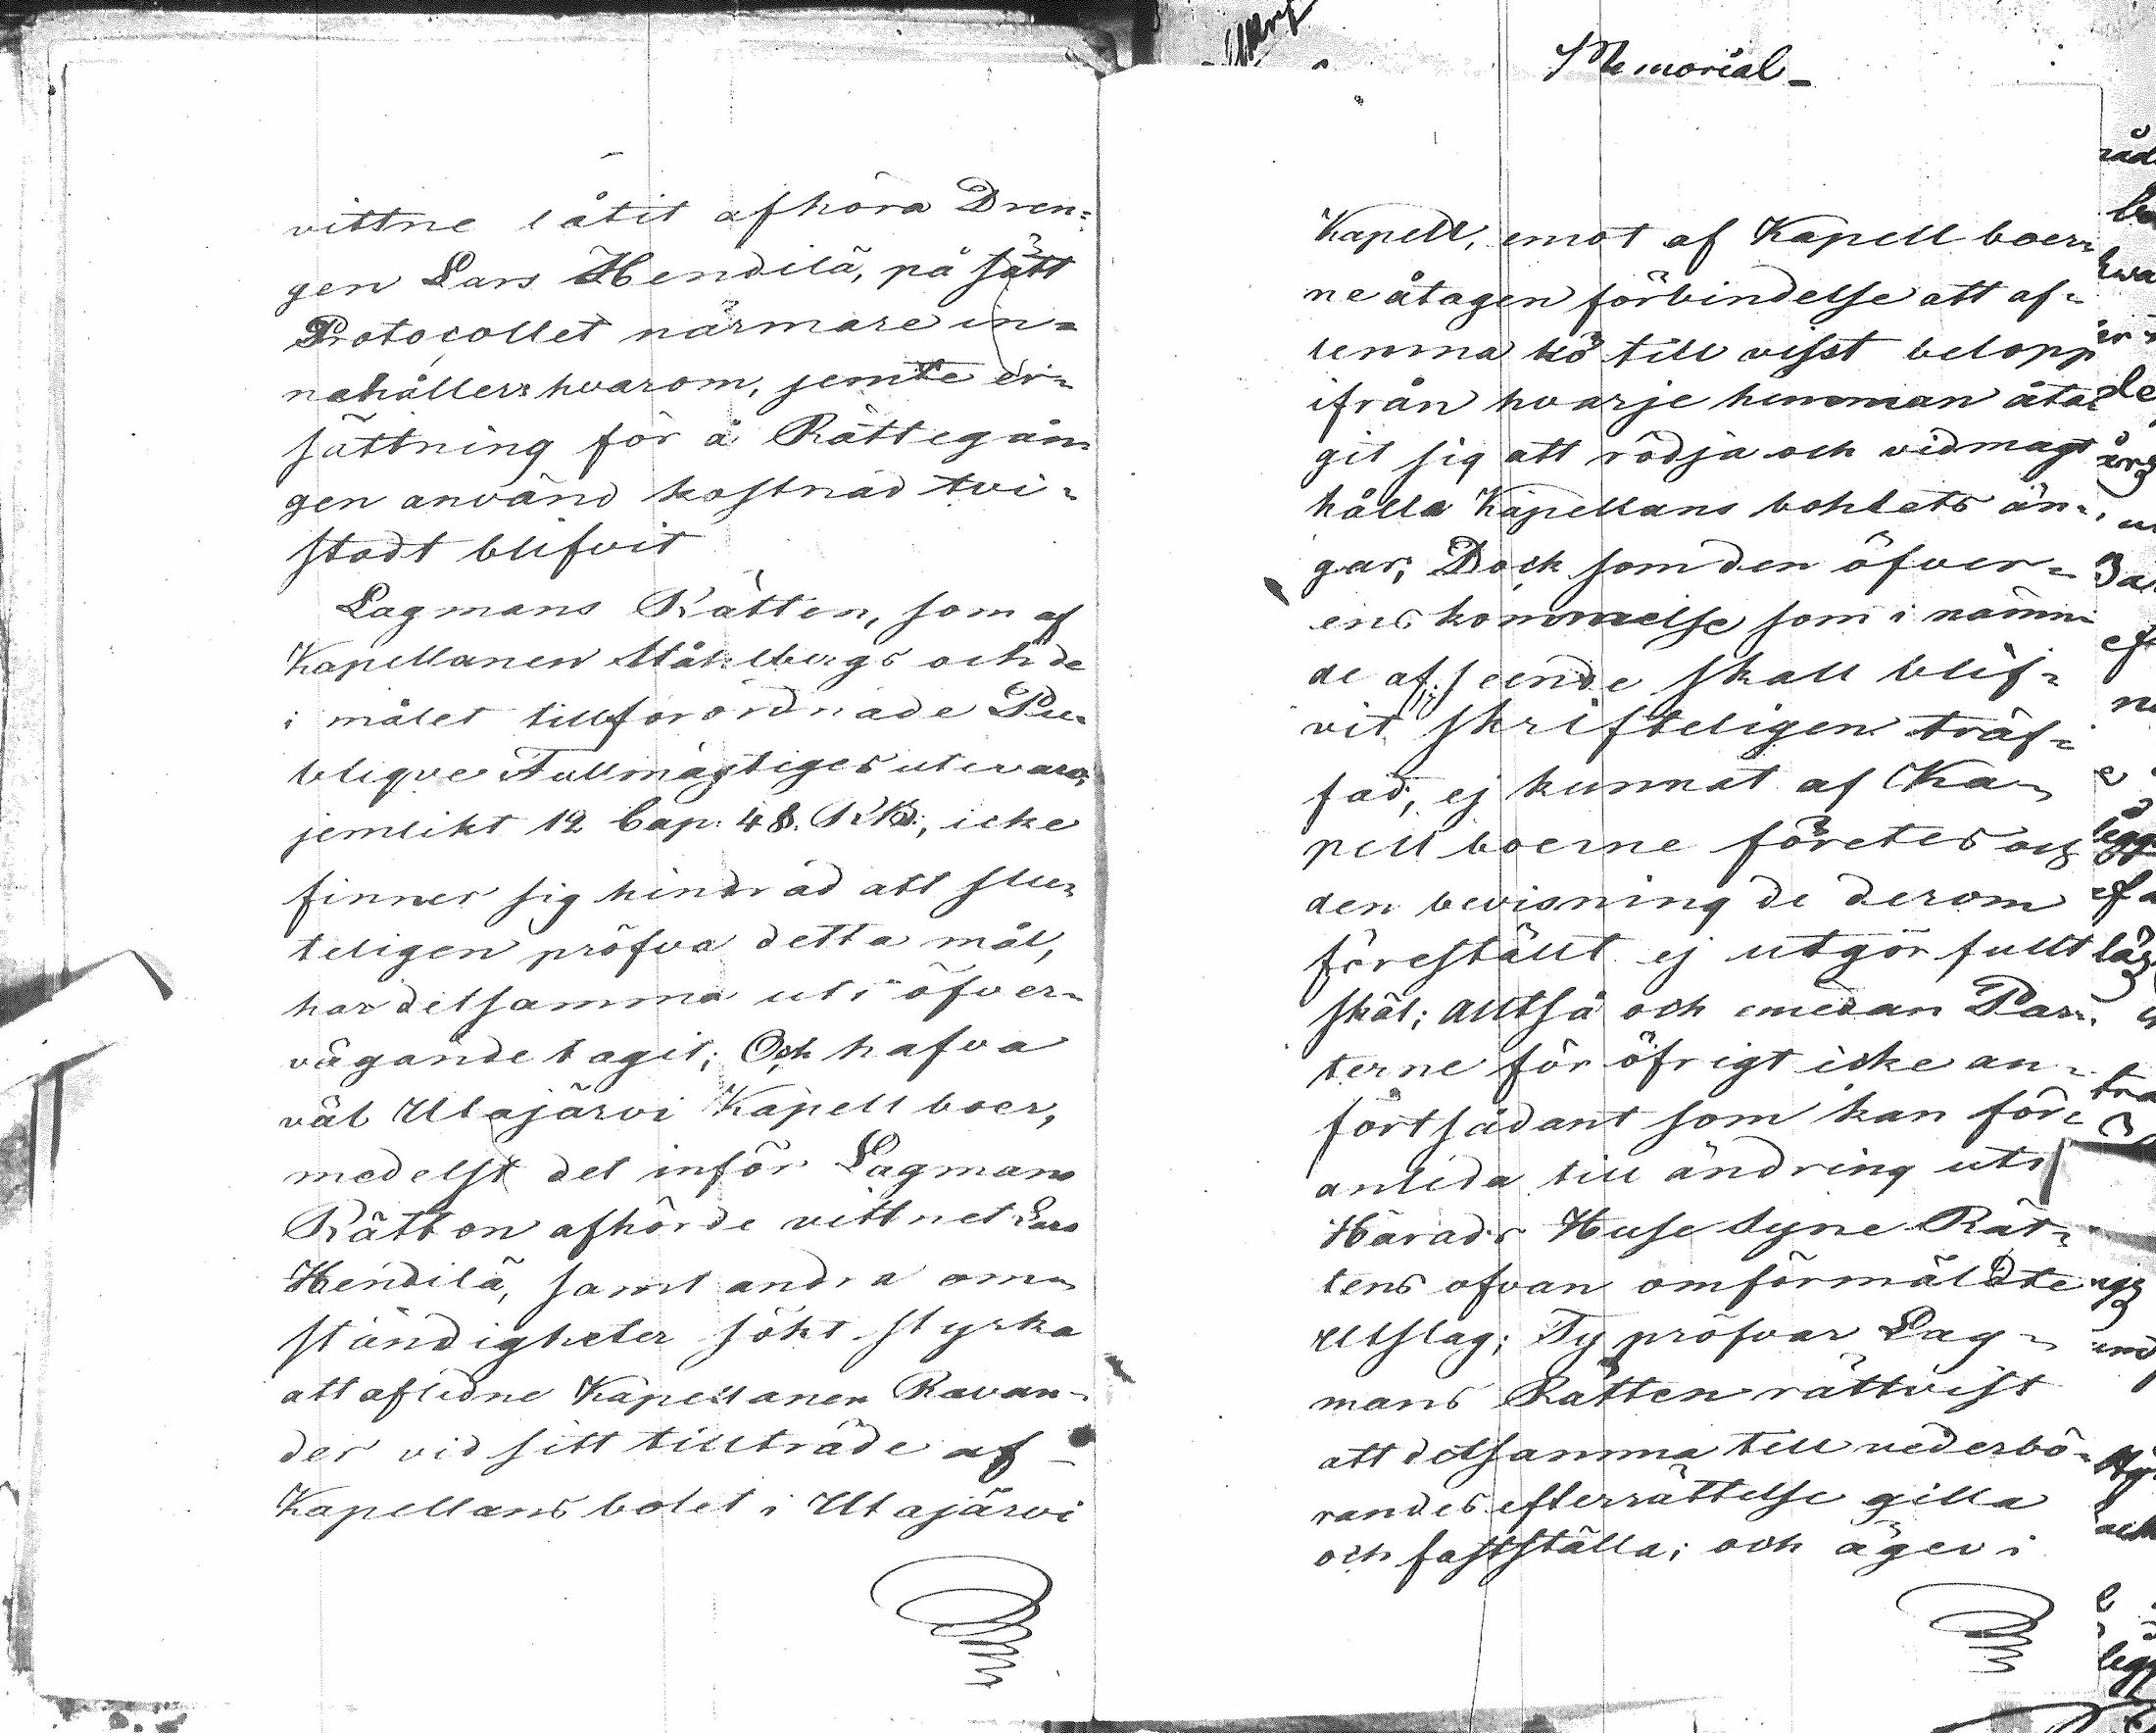 vittne låtit afhöra Dren=
gen Lars Hendilä, på sätt
Protocollet närmare in=
nehåller: hvarom, jemte er=
sättning för å Rättegån=
gen använd kostnad tvi=
stadt blifvit
Lagmans Rätten, som af
Kapellanen Ståhlbergs och de
i målet tillförordnade Pu=
blique Fullmägtiges utevaro,
jemlikt 12 Cap. 4 §. R.B., icke
finner sig hindrad att slu=
teligen pröfva detta mål,
har detsamma uti öfver=
vägande tagit; Och hafva
väl Utajärvi Kapell boer,
medelst det inför Lagmans
Rätten afhörde vittnet Lars
Hendilä, samt andra om=
ständigheter sökt styrka
att aflidne Kapellanen Ravan=
der vid sitt tillträde af
Kapellans bolet i Utajärvi
Memorial
Kapell, emot af Kapell boer=
ne åtagen förbindelse att af=
lemna hö till visst belopp
ifrån hvarje hemman åta=
git sig att rödja och vidmagt
hålla Kapellans bohlets än=
gar; Dock som den öfver=
ens kommelse som i nämn=
de afseende skall blif=
vit skrifteligen träf=
fad, ej kunnat af Ka=
pell boerne företes och
den bevisning de derom
föreställt ej utgör fullt
skäl; Alltså och emedan Par=
terne för öfrigt icke an=
fört sådant som kan för=
anleda till ändring uti
Härads Huse Syne Rät=
tens ofvan omförmäldte
Utslag; Ty pröfvar Lag=
mans Rätten rättvist
att detsamma till vederbö=
randes efterrättelse gilla
och fastställa; och äger i